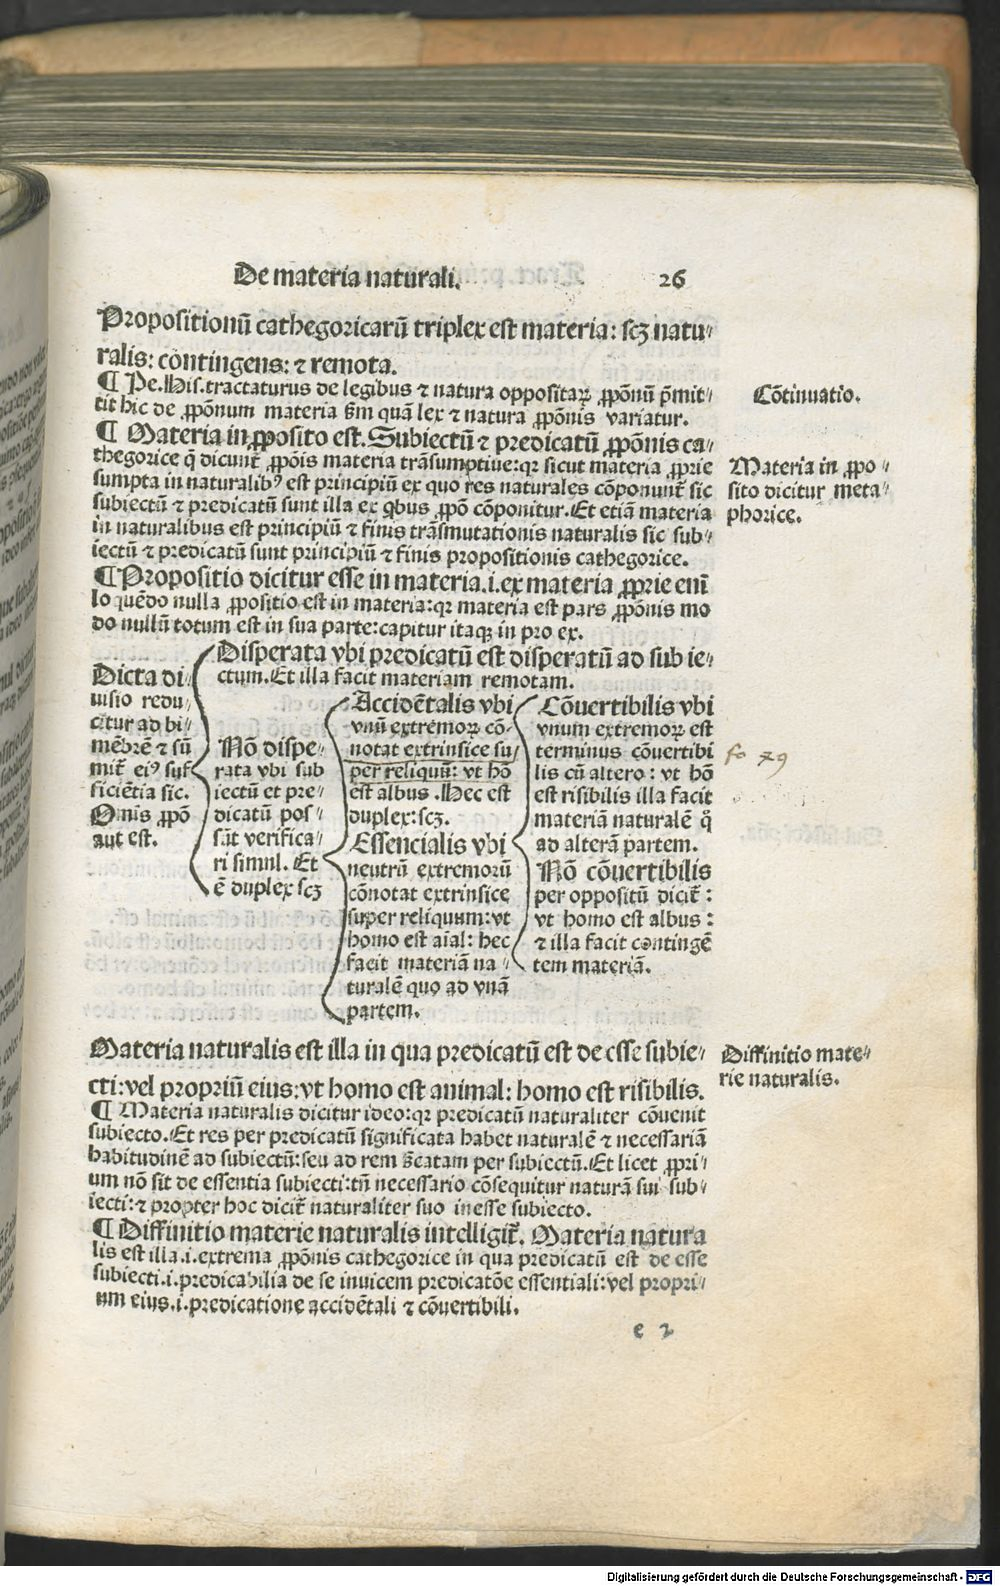 De materia naturali. 26
Propositionū cathegoricarū triplex est materia: scꝫ natu-
ralis: contingens: ⁊ remota.
¶ Pe. His. tractaturus de legibus ⁊ natura oppositaꝝ ꝓpōnū p̄mit-
tit hic de ꝓpōnum materia s̄m quā lex ⁊ natura ꝓpōnis variatur.
Cōtinuatio.
¶ Materia in ꝓposito est. Subiectū ⁊ predicatū ꝓpōnis ca-
thegorice q̄ dicunt᷑ ꝓpōis materia trāsumptiue: qꝛ sicut materia ꝓprie
sumpta in naturalibꝰ est principiū ex quo res naturales cōponunt᷑ sic
subiectū ⁊ predicatū sunt illa ex qbus ꝓpō cōponitur. Et etiā materia
in naturalibus est principiū ⁊ finis trāsmutationis naturalis sic sub-
iectū ⁊ predicatū sunt principiū ⁊ finis propositionis cathegorice.
Materia in ꝓpo-
sito dicitur meta-
phorice.
¶ Propositio dicitur esse in materia .i. ex materia ꝓprie enī
lo quēdo nulla ꝓpositio est in materia: qꝛ materia est pars ꝓpōnis mo
do nullū totum est in sua parte: capitur itaqꝫ in pro ex.
Dicta di-
uisio redu-
citur ad bi-
mēbrē ⁊ sū
mit᷑ eiꝰ suf-
ficiētia sic.
Oīnis ꝓpō
aut est.
Disperata vbi predicatū est disperatū ad sub ie-
ctum. Et illa facit materiam remotam.
Nō dispe-
rata vbi sub
iectū et pre-
dicatū pos-
sūt verifica-
ri simul. Et
ē duplex scꝫ
Accidētalis vbi
vnū extremoꝝ cō-
notat extrinsice su-
per reliquū: vt hō
est albus. Hec est
duplex: scꝫ.
Essencialis vbi
neutrū extremorū
cōnotat extrinsice
super reliquum: vt
homo est aīal: hec
facit materiā na-
turalē quo ad vnā
partem.
Cōuertibilis vbi
vnum extremoꝝ est
terminus cōuertibi
lis cū altero: vt hō
est risibilis illa facit
materiā naturalē q̄
ad alterā partem.
Nō cōuertibilis
per oppositū dicit᷑:
vt homo est albus:
⁊ illa facit contingē
tem materiā.
fo 79
Materia naturalis est illa in qua predicatū est de esse subie-
cti: vel propriū eius: vt homo est animal: homo est risibilis.
Diffinitio mate-
rie naturalis.
¶ Materia naturalis dicitur ideo: qꝛ predicatū naturaliter cōuenit
subiecto. Et res per predicatū significata habet naturalē ⁊ necessariā
habitudinē ad subiectū: seu ad rem s̄catam per subiectū. Et licet ꝓpri-
um nō sit de essentia subiecti: tn̄ necessario cōsequitur naturā sui sub-
iecti: ⁊ propter hoc dicit᷑ naturaliter suo inesse subiecto.
¶ Diffinitio materie naturalis intelligit᷑. Materia natura
lis est illa .i. extrema ꝓpōnis cathegorice in qua predicatū est de esse
subiecti .i. predicabilia de se inuicem predicatōe essentiali: vel propri-
um eius .i. predicatione accidētali ⁊ cōuertibili.
e 2
Digitalisierung gefördert durch die Deutsche Forschungsgemeinschaft - DFG